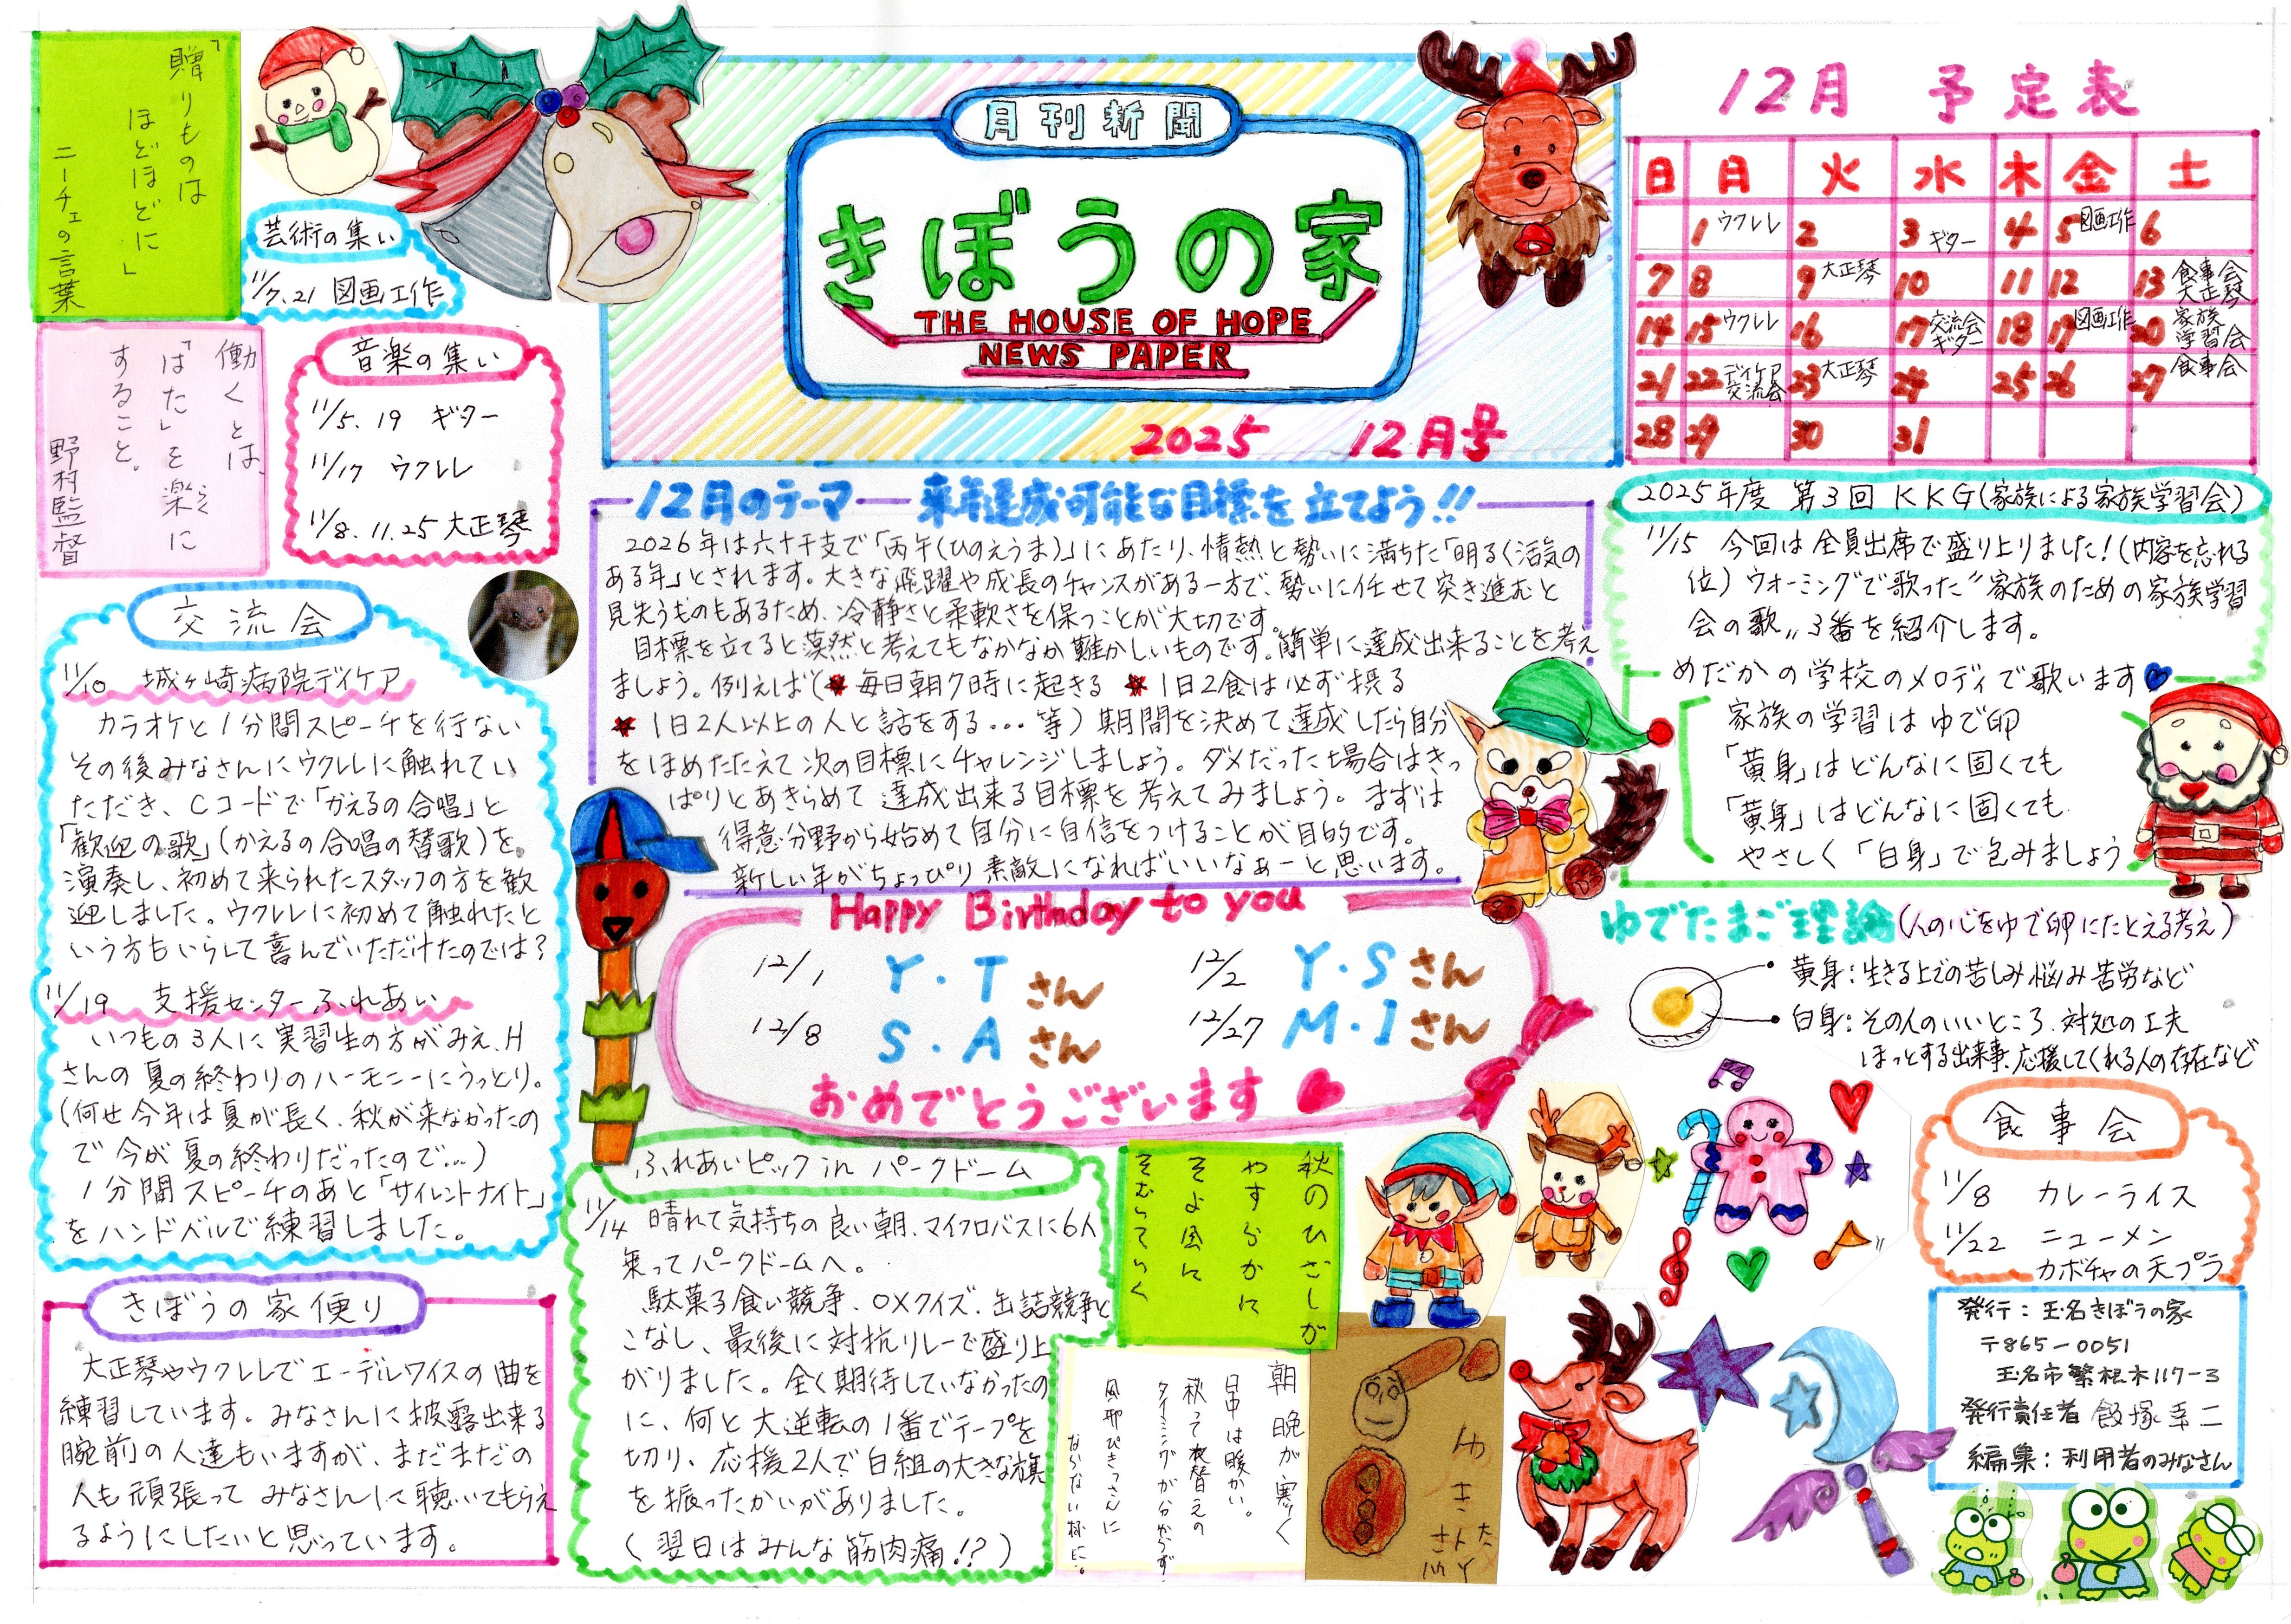 「贈りものは
ほどほどに」
ニーチェの言葉
芸術の集い
11/7.21 図画工作
働くとは、
「はた」を楽に
らく
すること。
野村監督
音楽の集い
11/5.19 ギター
11/17 ウクレレ
11/8.11.25 大正琴
月刊新聞
きぼうの家
THE HOUSE OF HOPE
NEWS PAPER
2025 12月号
12月 予定表
日 月 火 水 木 金 土
1 ウクレレ 2 3 ギター 4 5 図画工作 6
7 8 9 大正琴 10 11 12 13 食事会 大正琴
14 15 ウクレレ 16 17 交流会 ギター 18 19 図画工作 20 家族学習会
21 22 デイケア交流会 23 大正琴 24 25 26 27 食事会
28 29 30 31
交流会
11/10 城ヶ崎病院デイケア
カラオケと1分間スピーチを行ない
その後みなさんにウクレレに触れてい
ただき、Cコードで「かえるの合唱」と
「歓迎の歌」(かえるの合唱の替歌)を
演奏し、初めて来られたスタッフの方を歓
迎しました。ウクレレに初めて触れたと
いう方もいらして喜んでいただけたのでは?
11/19 支援センターふれあい
いつもの3人に実習生の方がみえ、H
さんの夏の終わりのハーモニーにうっとり。
(何せ今年は夏が長く、秋が来なかったの
で今が夏の終わりだったので…)
1分間スピーチのあと「サイレントナイト」
をハンドベルで練習しました。
きぼうの家便り
大正琴やウクレレでエーデルワイスの曲を
練習しています。みなさんに披露出来る
腕前の人達もいますが、まだまだの
人も頑張ってみなさんに聴いてもらえ
るようにしたいと思っています。
12月のテーマ 来年達成可能な目標を立てよう!!
2026年は六十干支で「丙午(ひのえうま)」にあたり、情熱と勢いに満ちた「明るく活気の
ある年」とされます。大きな飛躍や成長のチャンスがある一方で、勢いに任せて突き進むと
見失うものもあるため、冷静さと柔軟さを保つことが大切です。
目標を立てると漠然と考えてもなかなか難かしいものです。簡単に達成出来ることを考え
ましょう。例えば(★毎日朝7時に起きる ★1日2食は必ず摂る
★1日2人以上の人と話をする…等)期間を決めて達成したら自分
をほめたたえて次の目標にチャレンジしましょう。ダメだった場合はきっ
ぱりとあきらめて達成出来る目標を考えてみましょう。まずは
得意分野から始めて自分に自信をつけることが目的です。
新しい年がちょっぴり素敵になればいいなぁーと思います。
Happy Birthday to you
12/1 Y.Tさん 12/2 Y.Sさん
12/8 S.Aさん 12/27 M.Iさん
おめでとうございます
ふれあいピック in パークドーム
11/14 晴れて気持ちの良い朝、マイクロバスに6人
乗ってパークドームへ。
駄菓子食い競争、○×クイズ、缶詰競争と
こなし、最後に対抗リレーで盛り上
がりました。全く期待していなかったの
に、何と大逆転の1番でテープを
切り、応援2人で白組の大きな旗
を振ったかいがありました。
(翌日はみんな筋肉痛!?)
秋のひざしが
やすらかに
そよ風に
そむいていく
朝晩が寒く
日中は暖かい。
秋って衣替えの
タイミングが分からず
風邪ひきっさんに
ならない様に。
ゆきだ
2025年度 第3回 KKG(家族による家族学習会)
11/15 今回は全員出席で盛り上りました!(内容を忘れる
位)ウオーミングで歌った〝家族のための家族学習
会の歌〟3番を紹介します。
めだかの学校のメロディで歌います
家族の学習はゆで卵
「黄身」はどんなに固くても
「黄身」はどんなに固くても
やさしく「白身」で包みましょう
ゆでたまご理論(人の心をゆで卵にたとえる考え)
黄身:生きる上での苦しみ悩み苦労など
白身:その人のいいところ、対処の工夫
ほっとする出来事、応援してくれる人の存在など
食事会
11/8 カレーライス
11/22 ニューメン
カボチャの天プラ
発行:玉名きぼうの家
〒865-0051
玉名市繁根木117-3
発行責任者 飯塚幸二
編集:利用者のみなさん